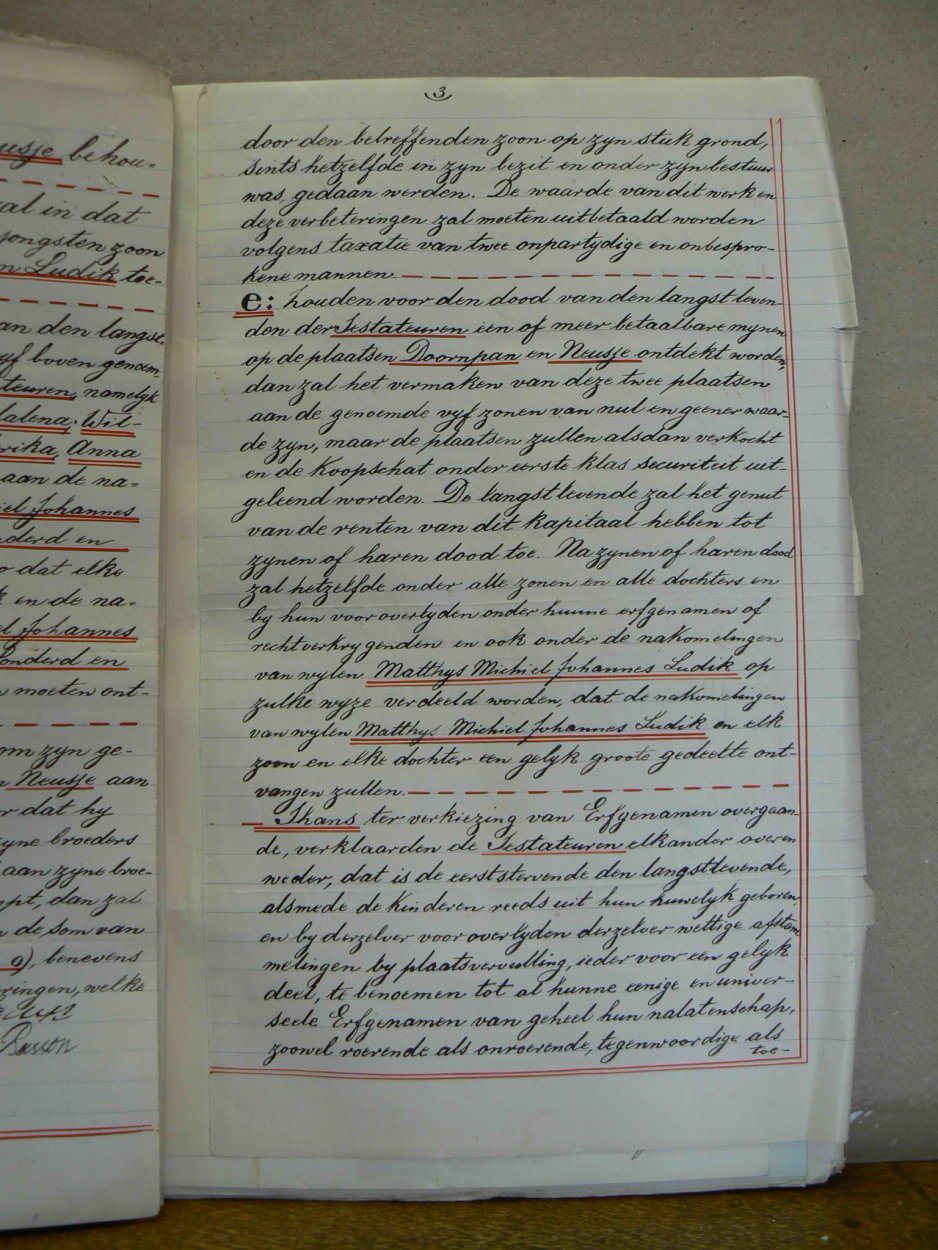 usje behou-
al in dat
jongsten zoon
n Ludik toe-
an den langst
yf boven genoem
teuren, namelyk
alena, Wil-
rika, Anna
aan de na-
iel Johannes
nderd en
o dat elke
k en de na-
el Johannes
onderd en
moeten ont-
om zyn ge-
n Neusje aan
r dat hy
zyne broeders
aan zyne broe-
pt, dan zal
n de som van
o), benevens
ringen, welke
Basson
3
door den betreffenden zoon op zyn stuk grond,
sints hetzelfde in zyn bezit en onder zyn bestuur
was, gedaan werden. De waarde van dit werk en
deze verbeteringen zal moeten uitbetaald worden
volgens taxatie van twee onpartydige en onbespro-
kene mannen.
e: houden voor den dood van den langstleven-
den der Testateuren een of meer betaalbare mynen
op de plaatsen Doornpan en Neusje ontdekt worden,
dan zal het vermaken van deze twee plaatsen
aan de genoemde vyf zonen van nul en geener waar-
de zyn, maar de plaatsen zullen alsdan verkocht
en de Koopschat onder eerste klas securiteit uit-
geleend worden. De langstlevende zal het genut
van de renten van dit Kapitaal hebben tot
zynen of haren dood toe. Na zynen of haren dood
zal hetzelfde onder alle zonen en alle dochters en
by hun vooroverlyden onder hunne erfgenamen of
rechtverkrygenden en ook onder de nakomelingen
van wylen Matthys Michiel Johannes Ludik op
zulke wyze verdeeld worden, dat de nakomelingen
van wylen Matthys Michiel Johannes Ludik en elk
zoon en elke dochter een gelyk groote gedeelte ont-
vangen zullen.
Thans ter verkiezing van Erfgenamen overgaan-
de, verklaarden de Testateuren elkander over en
weder, dat is de eerststervende den langstlevende,
alsmede de Kinderen reeds uit hun huwelyk geboren
en by derzelver vooroverlyden derzelver wettige afstam
melingen by plaatsvervulling, ieder voor een gelyk
deel, te benoemen tot al hunne eenige en univer-
seele Erfgenamen van geheel hun nalatenschap,
zoowel roerende als onroerende, tegenwoordige als
toe-